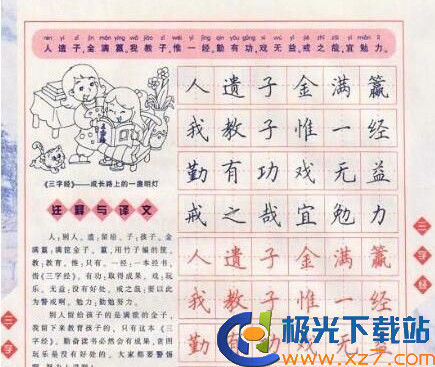 rén yí zǐ jīn mǎn yíng wǒ jiāo zǐ wéi yì jīng qín yǒu gōng xì wú yì jiè zhī zāi yí miǎn lì
人遗子,金满籯,我教子,惟一经,勤有功,戏无益,戒之哉,宜勉力。
人遗子金满籯
我教子惟一经
勤有功戏无益
戒之哉宜勉力
人遗子金满籯
我教子惟一经
勤有功戏无益
《三字经》——成长路上的一盏明灯
注释与译文
人:别人。遗:留给。子:孩子。金
满籯:满筐金子。籯,用竹子编的筐。
教:教育。惟:只有。一经:一本经书,
指《三字经》。有功:取得成果。戏:玩
乐。无益:没有好处。戒之哉:要以此
为警戒啊。勉力:勤勉努力。
别人留给孩子的是满筐的金子,
我留下来教育孩子的,只有这本《三
字经》。勤奋读书必然会有成果,贪图
玩乐是没有好处的。大家都要警惕
三字经
三字
极光下载站
www.xz7.com